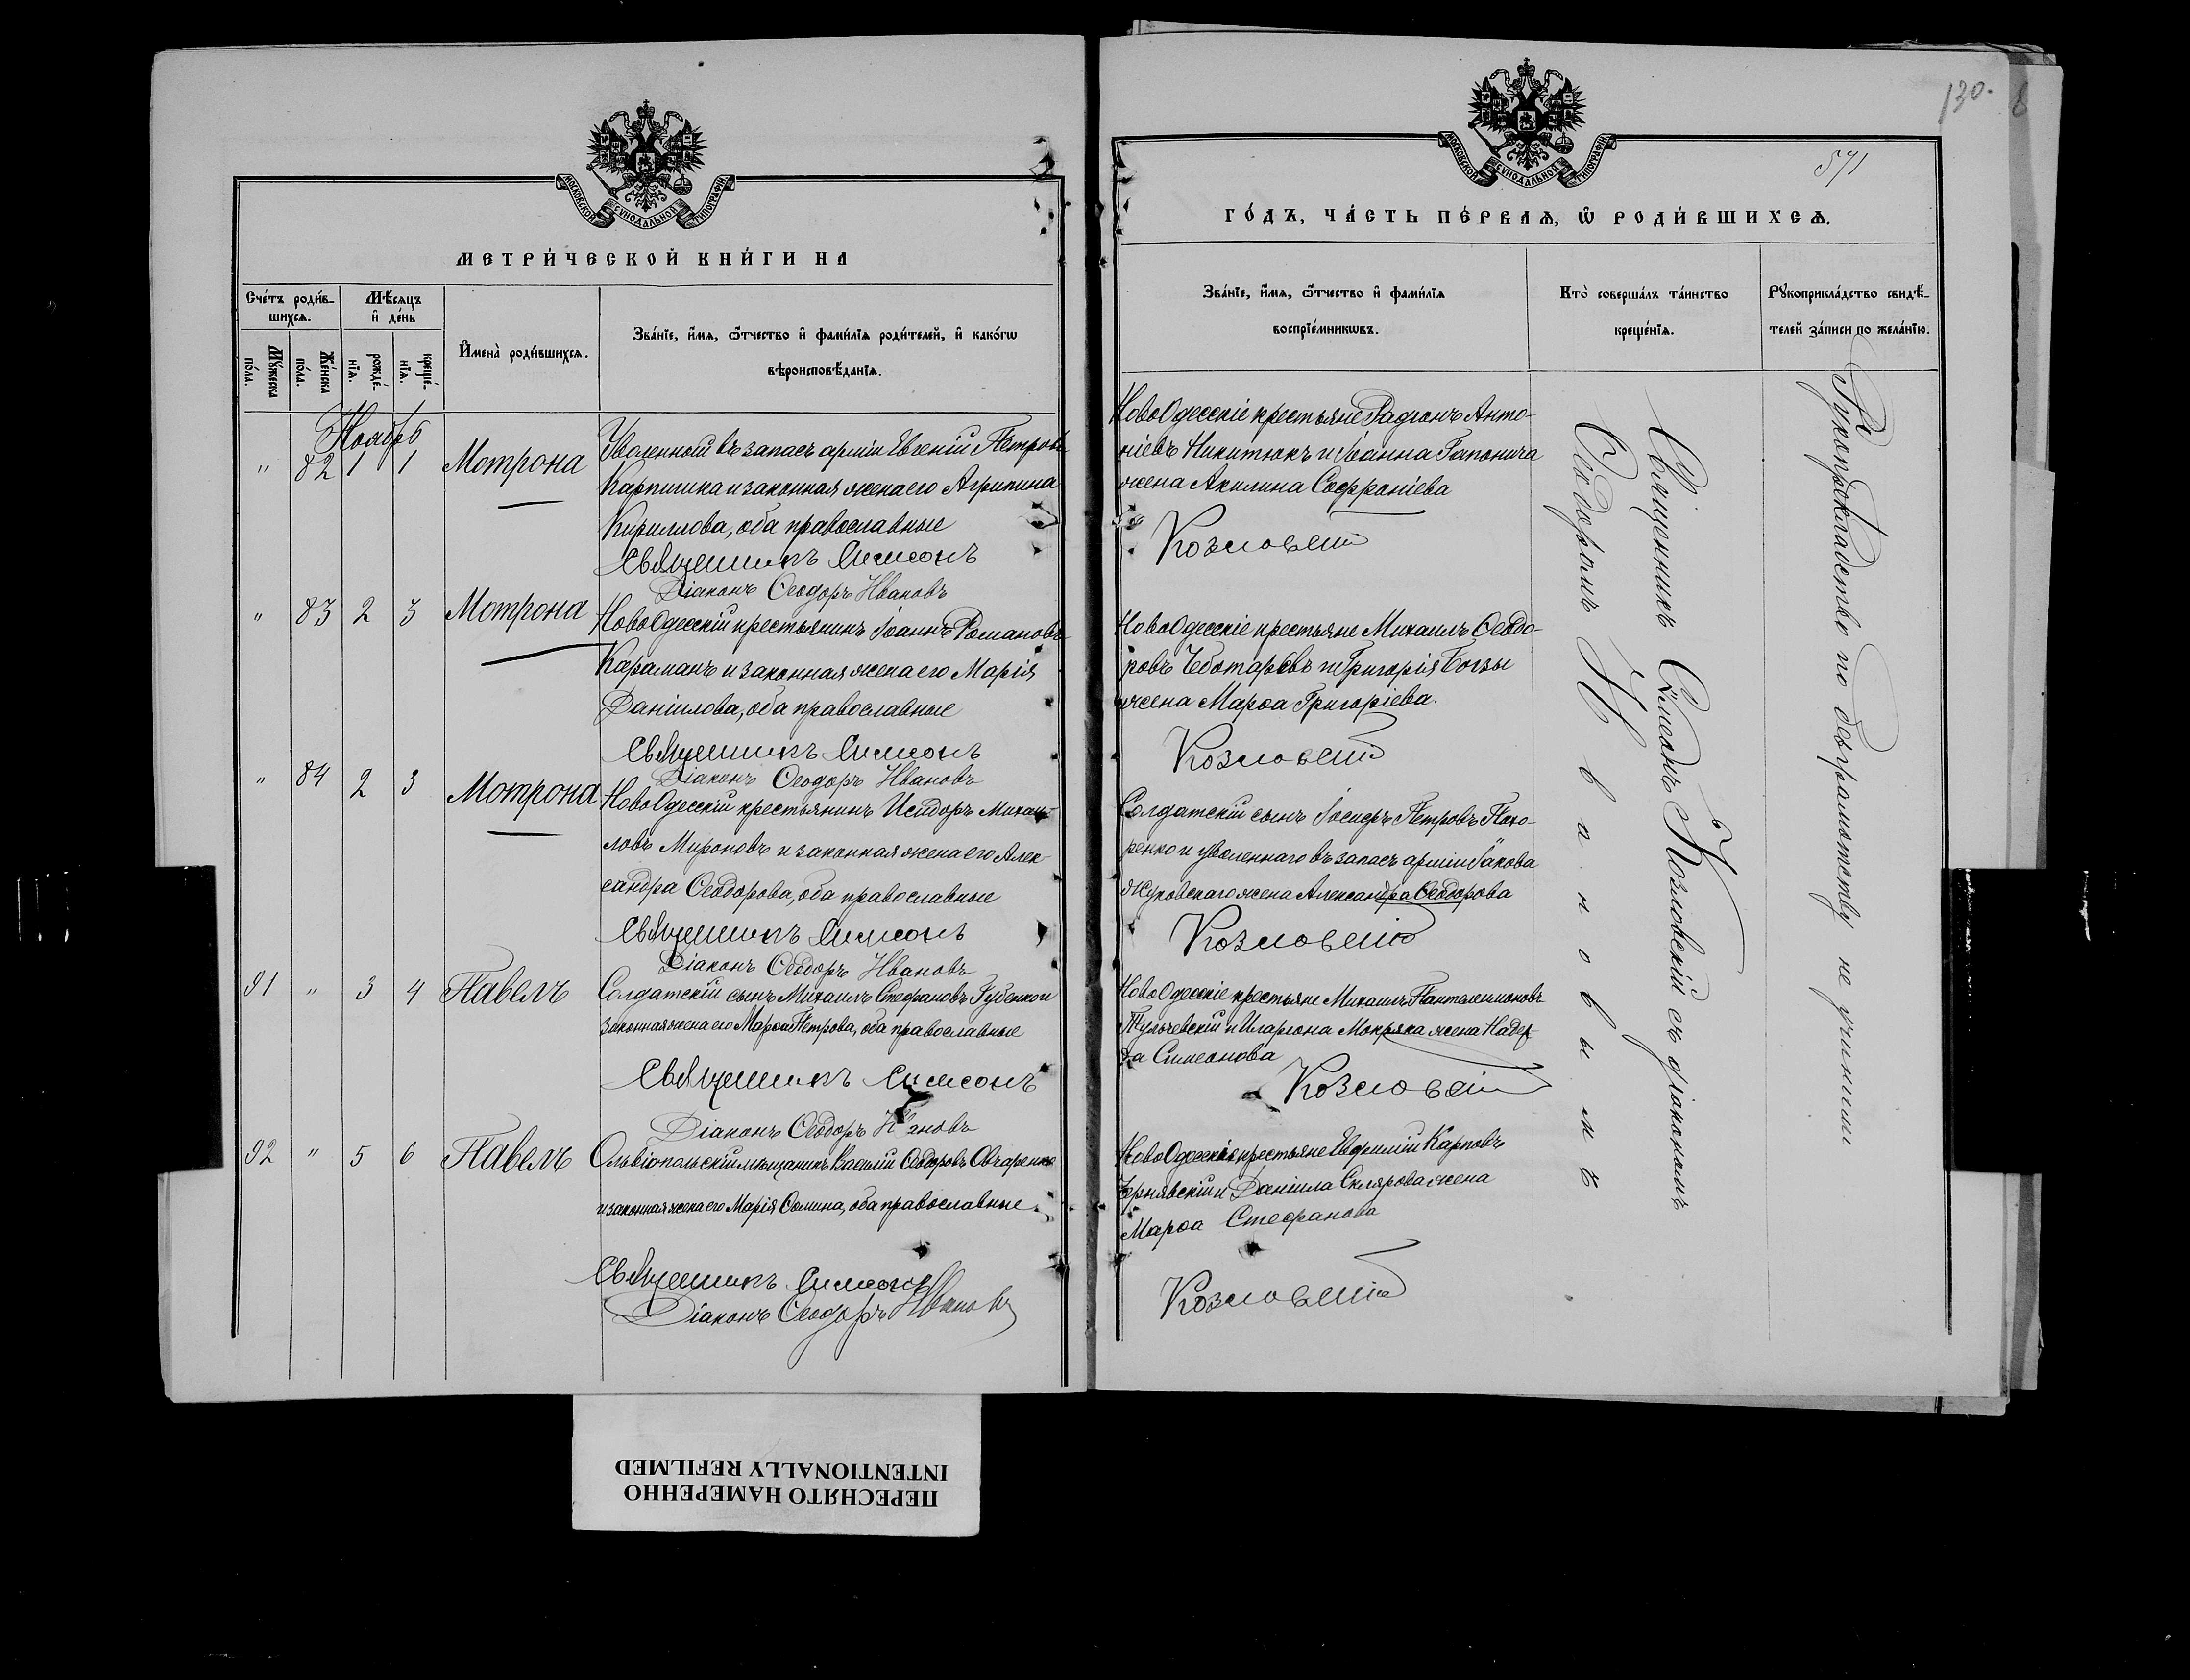 МОСКОВСКОЙ СУНОДАЛЬНОЙ ТИПОГРАФІИ
МЕТРИ́ЧЕСКОЙ КНИ́ГИ НА
Сче́тъ роди́в-
шихсѧ.
Мѣ́сяцъ
и҆ де́нь
Мꙋ́жеска
по́ла.
Же́нска
по́ла.
рожде́-
нїѧ.
креще́-
нїѧ.
И҆мена̀ роди́вшихсѧ.
Зва́нїе, и҆́мѧ, ѻ҆́тчество и҆ фами́лїѧ роди́телей, и҆ како́гѡ
вѣроисповѣ́данїѧ.
Ноябрь
" 82 1 1 Мотрона
Уволенный въ запасъ арміи Евгеній Петровъ
Карпишка и законная жена его Агрипина
Кириллова, оба православные
Священникъ Симеонъ
Діаконъ Ѳеодоръ Ивановъ
" 83 2 3 Мотрона
НовоОдесскій крестьянинъ Іоаннъ Романовъ
Караманъ и законная жена его Марія
Даніилова, оба православные
Священникъ Симеонъ
Діаконъ Ѳеодоръ Ивановъ
" 84 2 3 Мотрона
НовоОдесскій крестьянинъ Исидоръ Михаи-
ловъ Мироновъ и законная жена его Алек-
сандра Ѳеодорова, оба православные
Священникъ Симеонъ
Діаконъ Ѳеодоръ Ивановъ
91 " 3 4 Павелъ
Солдатскій сынъ Михаилъ Стефановъ Губенко и
законная жена его Марѳа Петрова, оба православные
Священникъ Симеонъ
Діаконъ Ѳеодоръ
92 " 5 6 Павелъ
Ольвіопольскій мѣщанинъ Василій Ѳеодоровъ Овчаренко
и законная жена его Марія Ѳомина, оба православные
Священникъ Симеонъ
Діаконъ Ѳеодоръ Ивановъ
130.
571
МОСКОВСКОЙ СУНОДАЛЬНОЙ ТИПОГРАФІИ
ГО́ДЪ, ЧА́СТЬ ПЕ́РВАѦ, Ѡ҆ РОДИ́ВШИХСѦ.
Зва́нїе, и҆́мѧ, ѻ҆́тчество и҆ фами́лїѧ
воспрїе́мникѡвъ.
Кто̀ соверша́лъ та́инство
креще́нїѧ.
Рꙋкоприкла́дство свидѣ́-
телей за́писи по жела́нїю.
НовоОдесскіе крестьяне Радіонъ Анто-
ніевъ Никитюкъ и Іоанна Гапонича
жена Акилина Софроніева
Козловскій
НовоОдесскіе крестьяне Михаилъ Ѳеодо-
ровъ Чеботаревъ и Григорія Богзы
жена Марѳа Григоріева.
Козловскій
Солдатскій сынъ Іосифъ Петровъ Пахо-
ренко и уволеннаго въ запасъ арміи Іакова
Жуковскаго жена Александра Ѳеодорова
Козловскій
НовоОдесскіе крестьяне Михаилъ Пантелеимоновъ
Тульчевскій и Иларіона Мокряка жена Надеж-
да Симеонова
Козловскій
НовоОдесскіе крестьяне Евфимій Карповъ
Чернявскій и Даніила Склярова жена
Марѳа Стефанова
Козловскій
Священникъ Симеонъ Козловскій съ діакономъ
Ѳеодоромъ Ивановымъ
Рукоприкладство по безграмятству не учинили
ПЕРЕСНЯТО НАМЕРЕННО
INTENTIONALLY REFILMED